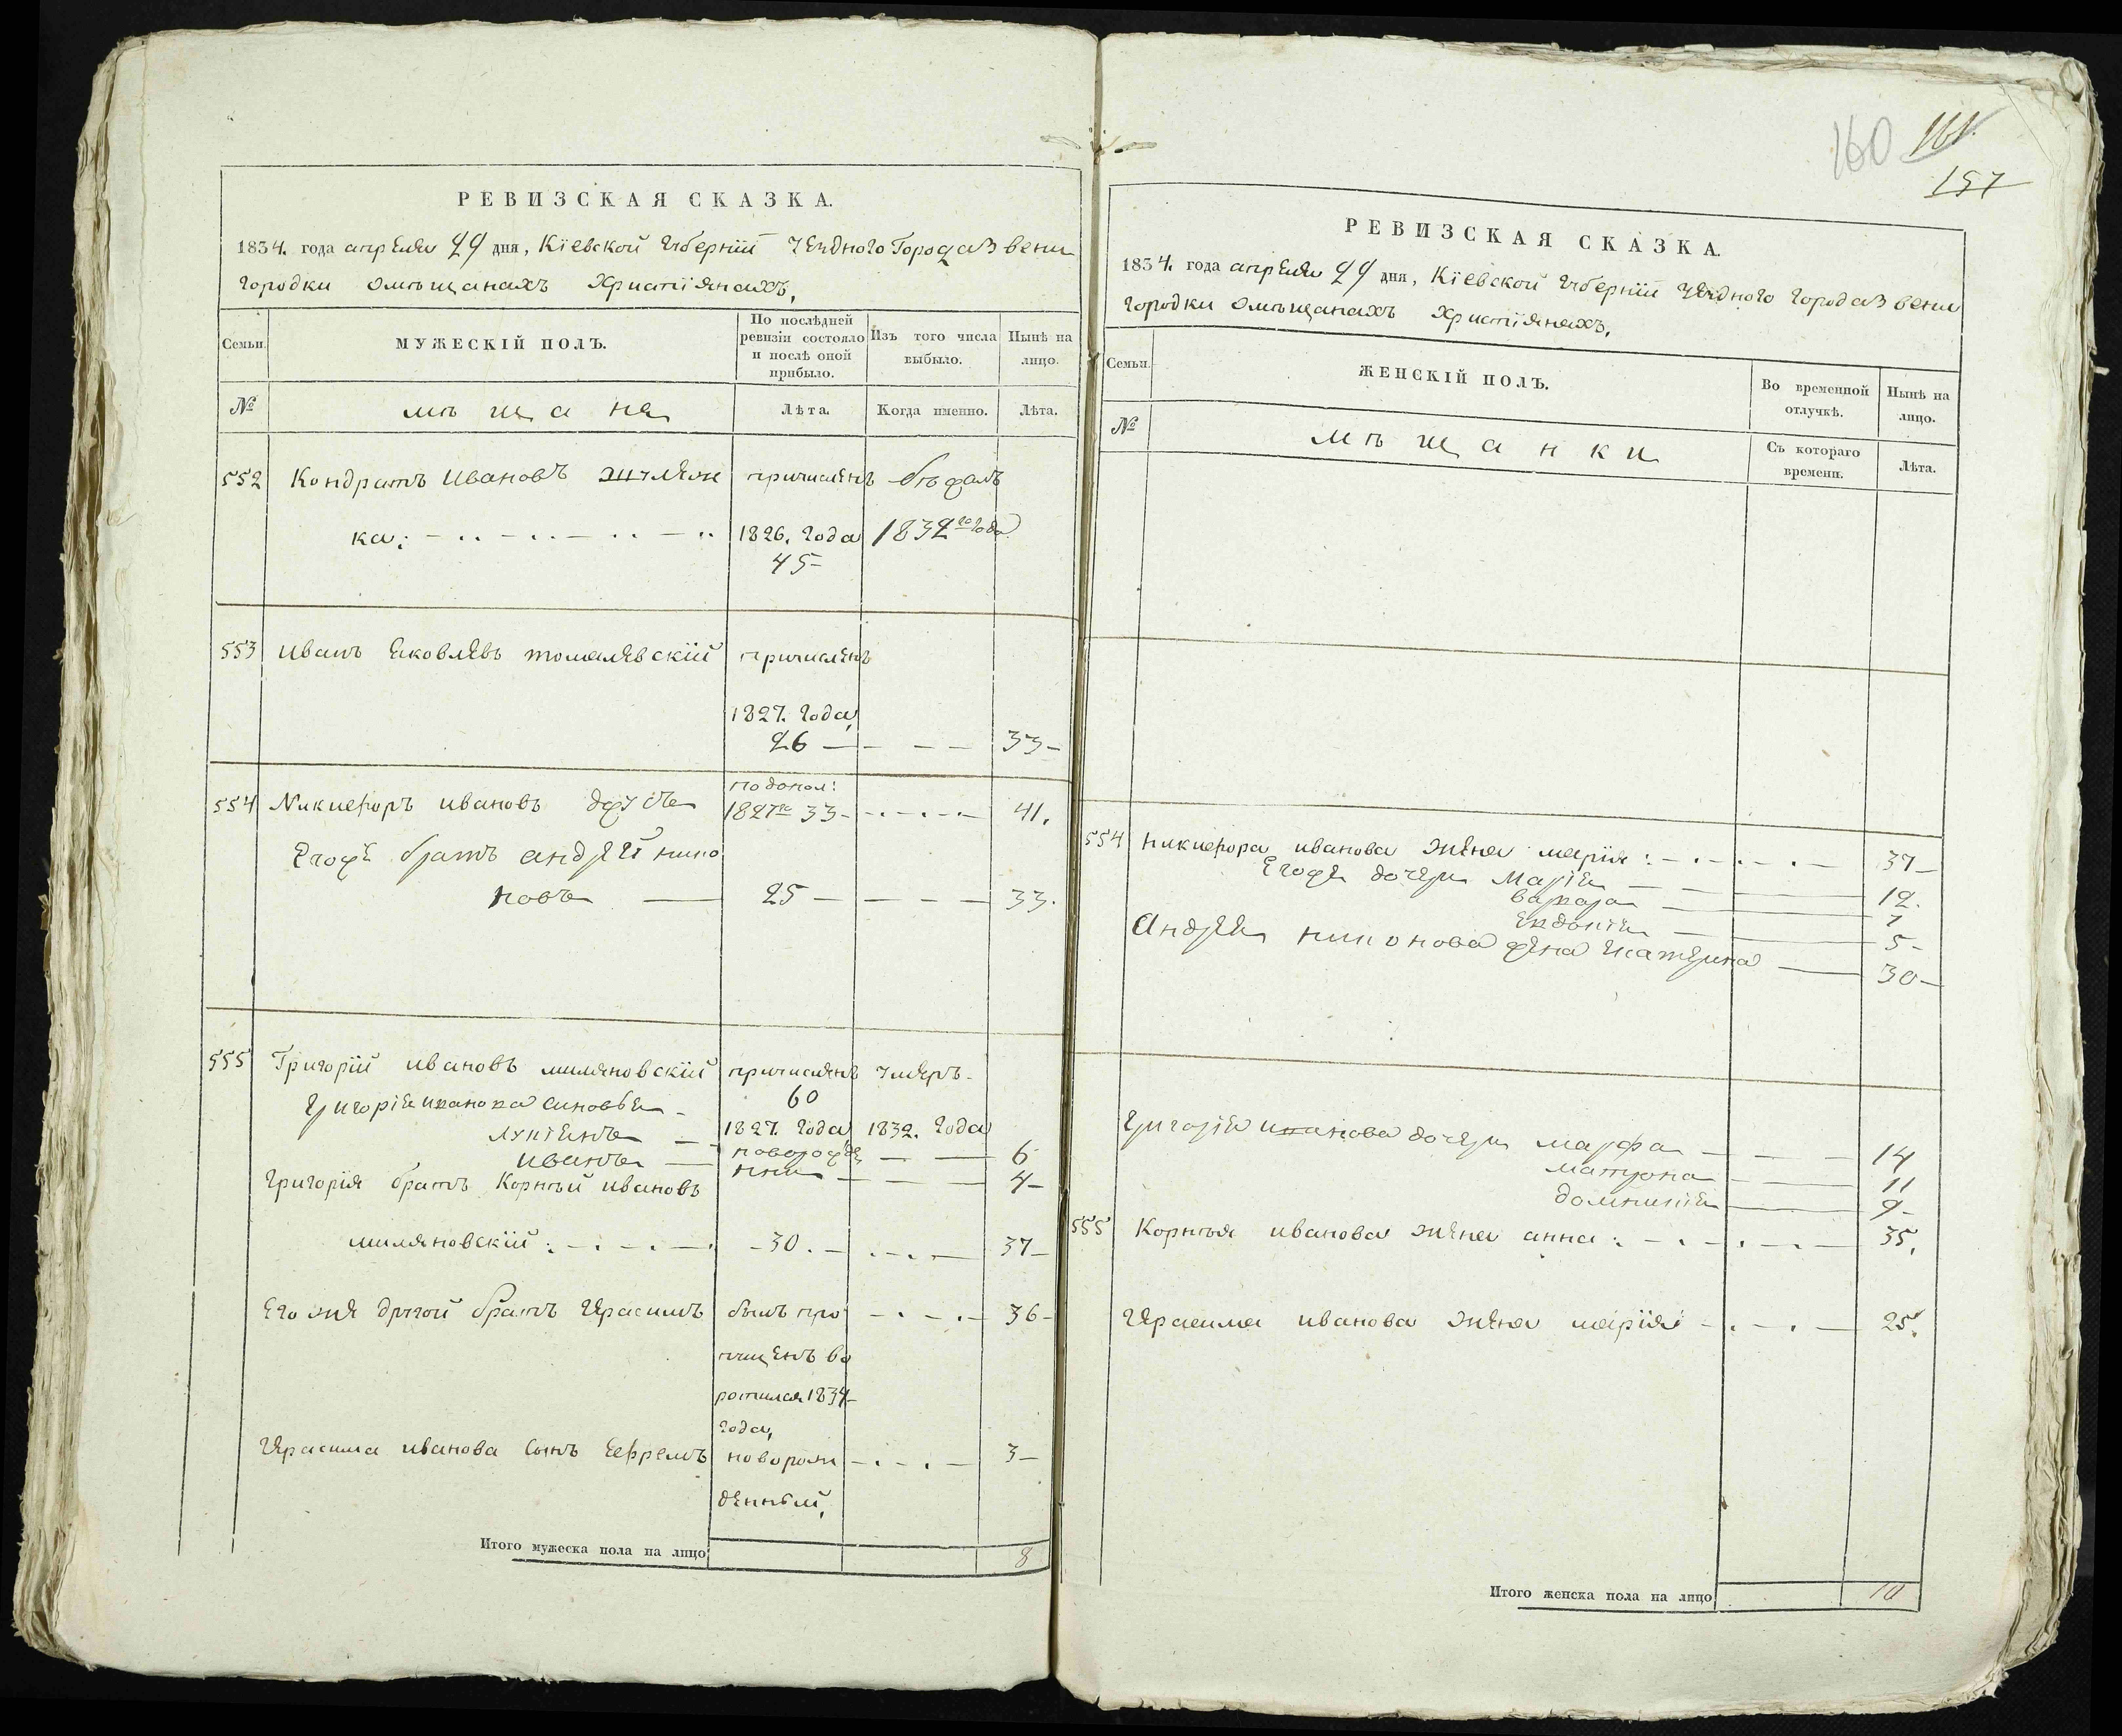 РЕВИЗСКАЯ СКАЗКА.
1834. года апреля 29 дня, Кіевской Губерніи Уездного Города Звени
городки омѣщанахъ Христіянахъ,
Семьи. МУЖЕСКІЙ ПОЛЪ. По послѣдней ревизіи состояло и послѣ оной прибыло. Изъ того числа выбыло. Нынѣ на лицо.
№ мѣщане Лѣта. Когда именно. Лѣта.
552 Кондратъ Ивановъ причисленъ
ка: 1826. года 1832го года
45
553 Иванъ Яковлевъ томалевскій причисленъ
1827. года,
26 — — — 33
554 Никифоръ ивановъ подопол: 1827го 33 41.
Егоже братъ андрей нико
новъ — 25 — — — 33.
555 Григорій ивановъ миляновскій причисленъ умеръ
Григорія иванова синовья 60
Лукіенъ 1827. года 1832. года
6
иванъ новорожде
нни 4
Григорія братъ Корнѣй ивановъ
миляновскій: 30. 37
Его же другой братъ Герасимъ былъ про 36
пущенъ во
ротился 1834
года,
Герасима иванова сынъ Ефремъ новорож 3
денный,
Итого мужеска пола на лицо 8
160 161
157
РЕВИЗСКАЯ СКАЗКА.
1834. года апреля 29 дня, Кіевской Губерніи уездного города Звени
городки омѣщанахъ Христіянахъ,
Семьи. ЖЕНСКІЙ ПОЛЪ. Во временной отлучкѣ. Нынѣ на лицо.
№ мѣщанки Съ котораго времени. Лѣта.
554 никифора иванова жена марія: 37
Егоже дочери Марія 12.
варвара 7
Евдокія 5
Андрея никонова жена Екатерина 30
Григорія иванова дочери марфа 14
матрона 11
домникія 9
555 Корнѣя иванова жена анна: 35.
Герасима иванова жена марія 25.
Итого женска пола на лицо 10